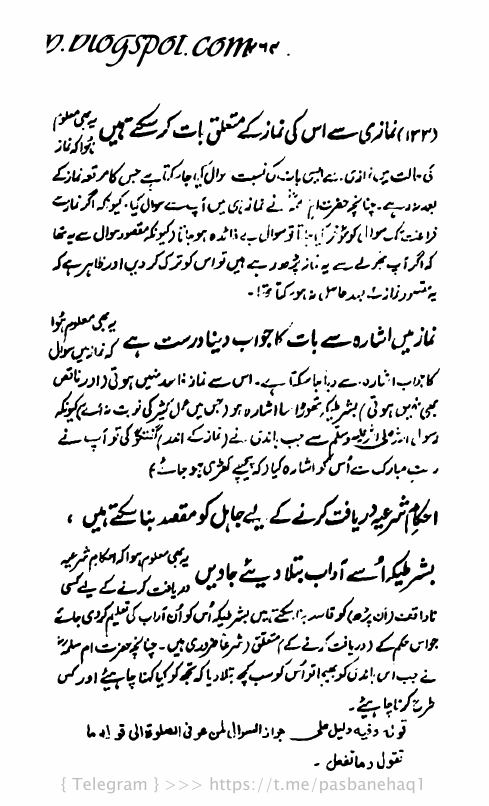 D.BLOGSPOT.COM ۲۶۴
(۱۳۳) نمازی سے اس کی نماز کے متعلق بات کر سکتے ہیں یہ بھی معلوم ہوا کہ نماز
کی حالت میں نمازی سے ایسی بات کی نسبت سوال کیا جا سکتا ہے جس کا موقعہ نماز کے
بعد نہ رہے۔ چنانچہ حضرت نے نماز ہی میں آپ سے سوال کیا۔ کیونکہ اگر نماز سے
فراغت تک سوال کو مؤخر کیا جاتا تو سوال بے فائدہ ہو جاتا (کیونکہ مقصود سوال سے یہ تھا
کہ اگر آپ بھولے سے یہ نماز پڑھ رہے ہیں تو اس کو ترک کر دیں اور ظاہر ہے کہ
یہ مقصود نماز کے بعد حاصل نہ ہو سکتا تھا۔
نماز میں اشارہ سے بات کا جواب دینا درست ہے یہ بھی معلوم ہوا کہ نماز میں سوال
کا جواب اشارہ سے دیا جا سکتا ہے۔ اس سے نماز فاسد نہیں ہوتی (اور ناقص
بھی نہیں ہوتی) بشرطیکہ تھوڑا سا اشارہ ہو (جس میں عمل کثیر کی نوبت نہ آئے) کیونکہ
رسول اللہ صلی اللہ علیہ وسلم سے جب باندی نے (نماز کے اندر) گفتگو کی تو آپ نے
دست مبارک سے اُس کو اشارہ کیا (کہ پیچھے کھڑی ہو جائے)
احکام شرعیہ دریافت کرنے کے لیے جاہل کو مقصد بنا سکتے ہیں ،
بشرطیکہ اُسے آداب بتلا دیئے جاویں یہ بھی معلوم ہوا کہ احکام شرعیہ دریافت کرنے کے لیے کسی
ناواقف (ان پڑھ) کو قاصد بنا سکتے ہیں بشرطیکہ اُس کو اُن آداب کی تعلیم کر دی جائے
جو اس حکم کے (دریافت کرنے کے) متعلق (شرعاً) ضروری ہیں۔ چنانچہ حضرت ام سلمہ
نے جب اس باندی کو بھیجا تو اُس کو سب کچھ بتلا دیا کہ تجھ کو کیا کہنا چاہیئے اور کس
طرح کرنا چاہیئے۔
قوله وفيه دليل على جواز السوال لمن هو في الصلوة الى قوله ما
تقول وما تفعل ۔
{ Telegram } >>> https://t.me/pasbanehaq1